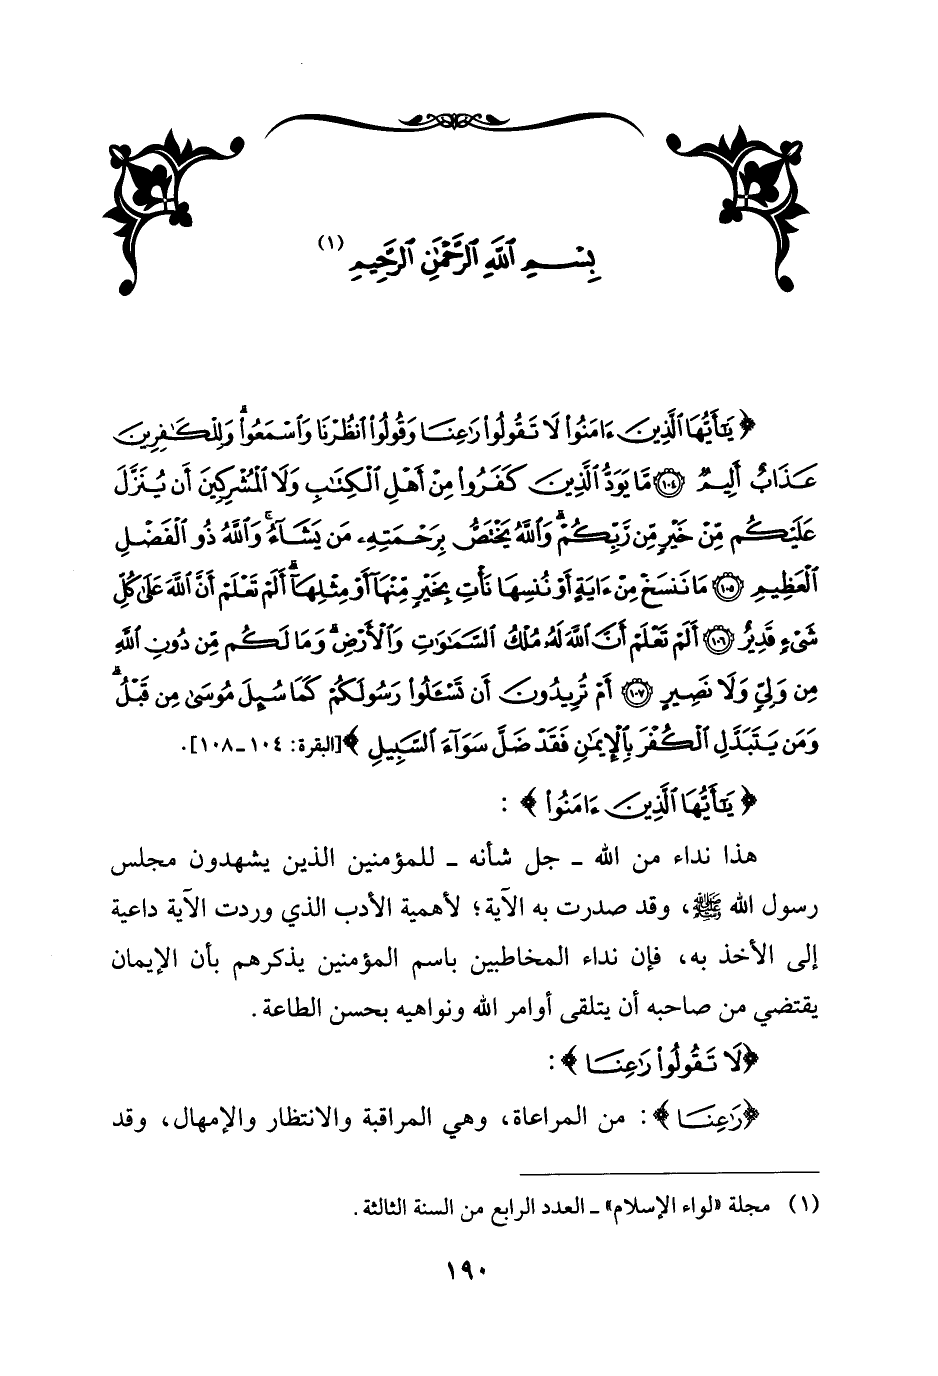 بِسْمِ ٱللَّهِ ٱلرَّحْمَٰنِ ٱلرَّحِيمِ (١)
﴿ يَٰٓأَيُّهَا ٱلَّذِينَ ءَامَنُوا۟ لَا تَقُولُوا۟ رَٰعِنَا وَقُولُوا۟ ٱنظُرْنَا وَٱسْمَعُوا۟ ۗ وَلِلْكَٰفِرِينَ
عَذَابٌ أَلِيمٌ ﴿١٠٤﴾ مَّا يَوَدُّ ٱلَّذِينَ كَفَرُوا۟ مِنْ أَهْلِ ٱلْكِتَٰبِ وَلَا ٱلْمُشْرِكِينَ أَن يُنَزَّلَ
عَلَيْكُم مِّنْ خَيْرٍ مِّن رَّبِّكُمْ ۗ وَٱللَّهُ يَخْتَصُّ بِرَحْمَتِهِۦ مَن يَشَآءُ ۚ وَٱللَّهُ ذُو ٱلْفَضْلِ
ٱلْعَظِيمِ ﴿١٠٥﴾ مَا نَنسَخْ مِنْ ءَايَةٍ أَوْ نُنسِهَا نَأْتِ بِخَيْرٍ مِّنْهَآ أَوْ مِثْلِهَآ ۗ أَلَمْ تَعْلَمْ أَنَّ ٱللَّهَ عَلَىٰ كُلِّ
شَىْءٍ قَدِيرٌ ﴿١٠٦﴾ أَلَمْ تَعْلَمْ أَنَّ ٱللَّهَ لَهُۥ مُلْكُ ٱلسَّمَٰوَٰتِ وَٱلْأَرْضِ ۗ وَمَا لَكُم مِّن دُونِ ٱللَّهِ
مِن وَلِىٍّ وَلَا نَصِيرٍ ﴿١٠٧﴾ أَمْ تُرِيدُونَ أَن تَسْـَٔلُوا۟ رَسُولَكُمْ كَمَا سُئِلَ مُوسَىٰ مِن قَبْلُ ۗ
وَمَن يَتَبَدَّلِ ٱلْكُفْرَ بِٱلْإِيمَٰنِ فَقَدْ ضَلَّ سَوَآءَ ٱلسَّبِيلِ ﴾ [البقرة: ١٠٤ - ١٠٨].
﴿ يَٰٓأَيُّهَا ٱلَّذِينَ ءَامَنُوا۟ ﴾ :
هذا نداء من الله - جل شأنه - للمؤمنين الذين يشهدون مجلس
رسول الله ﷺ، وقد صدرت به الآية؛ لأهمية الأدب الذي وردت الآية داعية
إلى الأخذ به، فإن نداء المخاطبين باسم المؤمنين يذكرهم بأن الإيمان
يقتضي من صاحبه أن يتلقى أوامر الله ونواهيه بحسن الطاعة.
﴿لَا تَقُولُوا۟ رَٰعِنَا ﴾ :
﴿رَٰعِنَا ﴾ : من المراعاة، وهي المراقبة والانتظار والإمهال، وقد
(١) مجلة «لواء الإسلام» - العدد الرابع من السنة الثالثة.
١٩٠